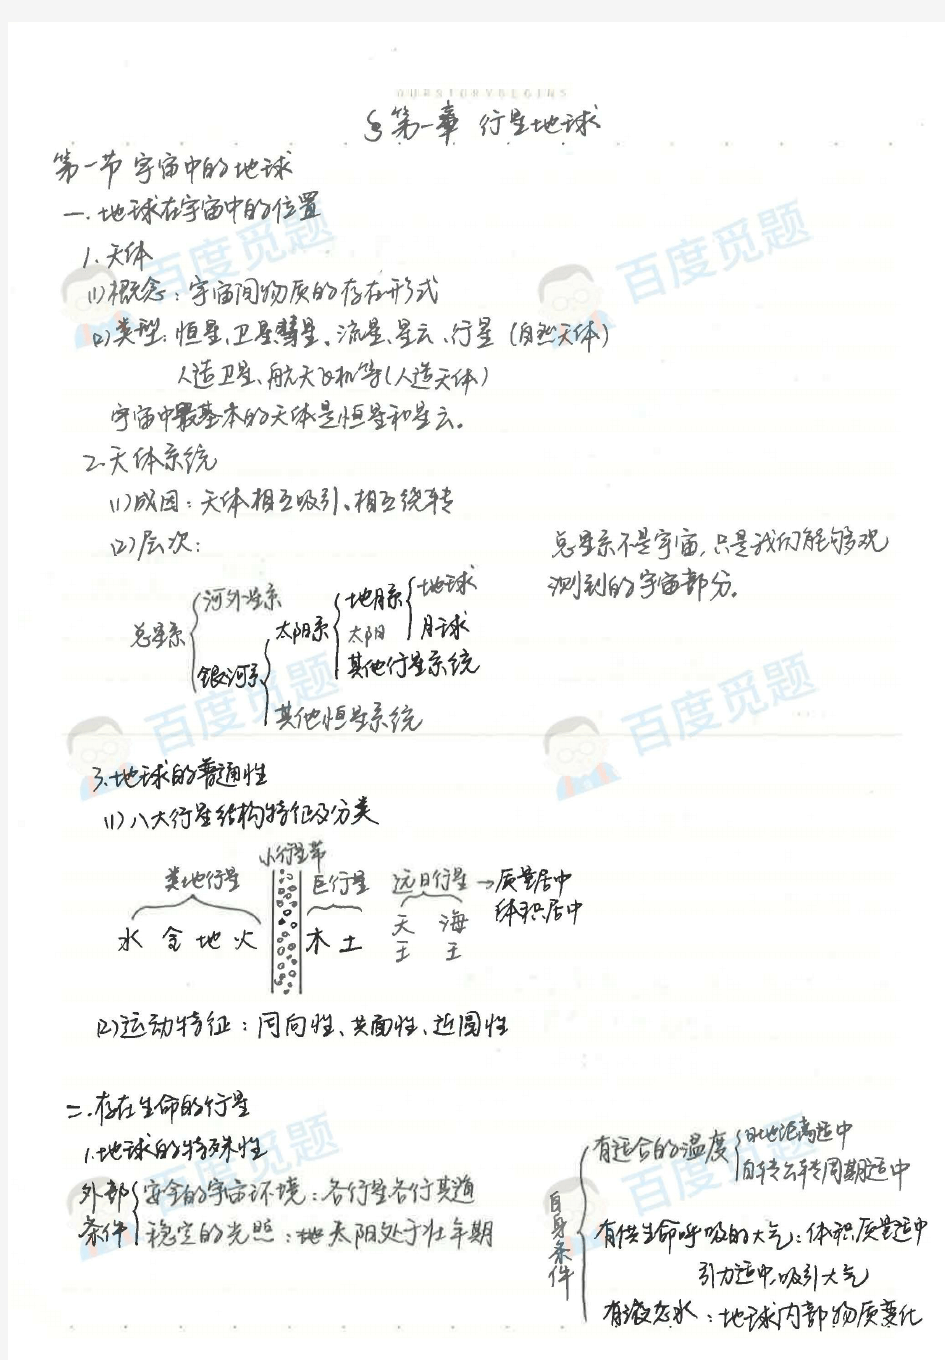 OURSTORYBEGINS
§第一章 行星地球
第一节 宇宙中的地球
一.地球在宇宙中的位置
1.天体
(1)概念:宇宙间物质的存在形式
(2)类型:恒星、卫星、彗星、流星、星云、行星(自然天体)
人造卫星、航天飞机等(人造天体)
宇宙中最基本的天体是恒星和星云。
2.天体系统
(1)成因:天体相互吸引、相互绕转
(2)层次:
总星系不是宇宙,只是我们能够观
测到的宇宙部分。
总星系
河外星系
银河系
太阳系
其他恒星系统
地月系
太阳
其他行星系统
地球
月球
3.地球的普通性
(1)八大行星结构特征及分类
小行星带
类地行星 巨行星 远日行星→质量居中
体积居中
水 金 地 火 木 土 天王 海王
(2)运动特征:同向性、共面性、近圆性
二.存在生命的行星
1.地球的特殊性
外部条件
安全的宇宙环境:各行星各行其道
稳定的光照:地太阳处于壮年期
自身条件
有适合的温度
日地距离适中
自转公转周期适中
有供生命呼吸的大气:体积质量适中
引力适中,吸引大气
有液态水:地球内部物质变化
百度觅题
百度觅题
百度觅题
百度觅题
百度觅题
百度觅题